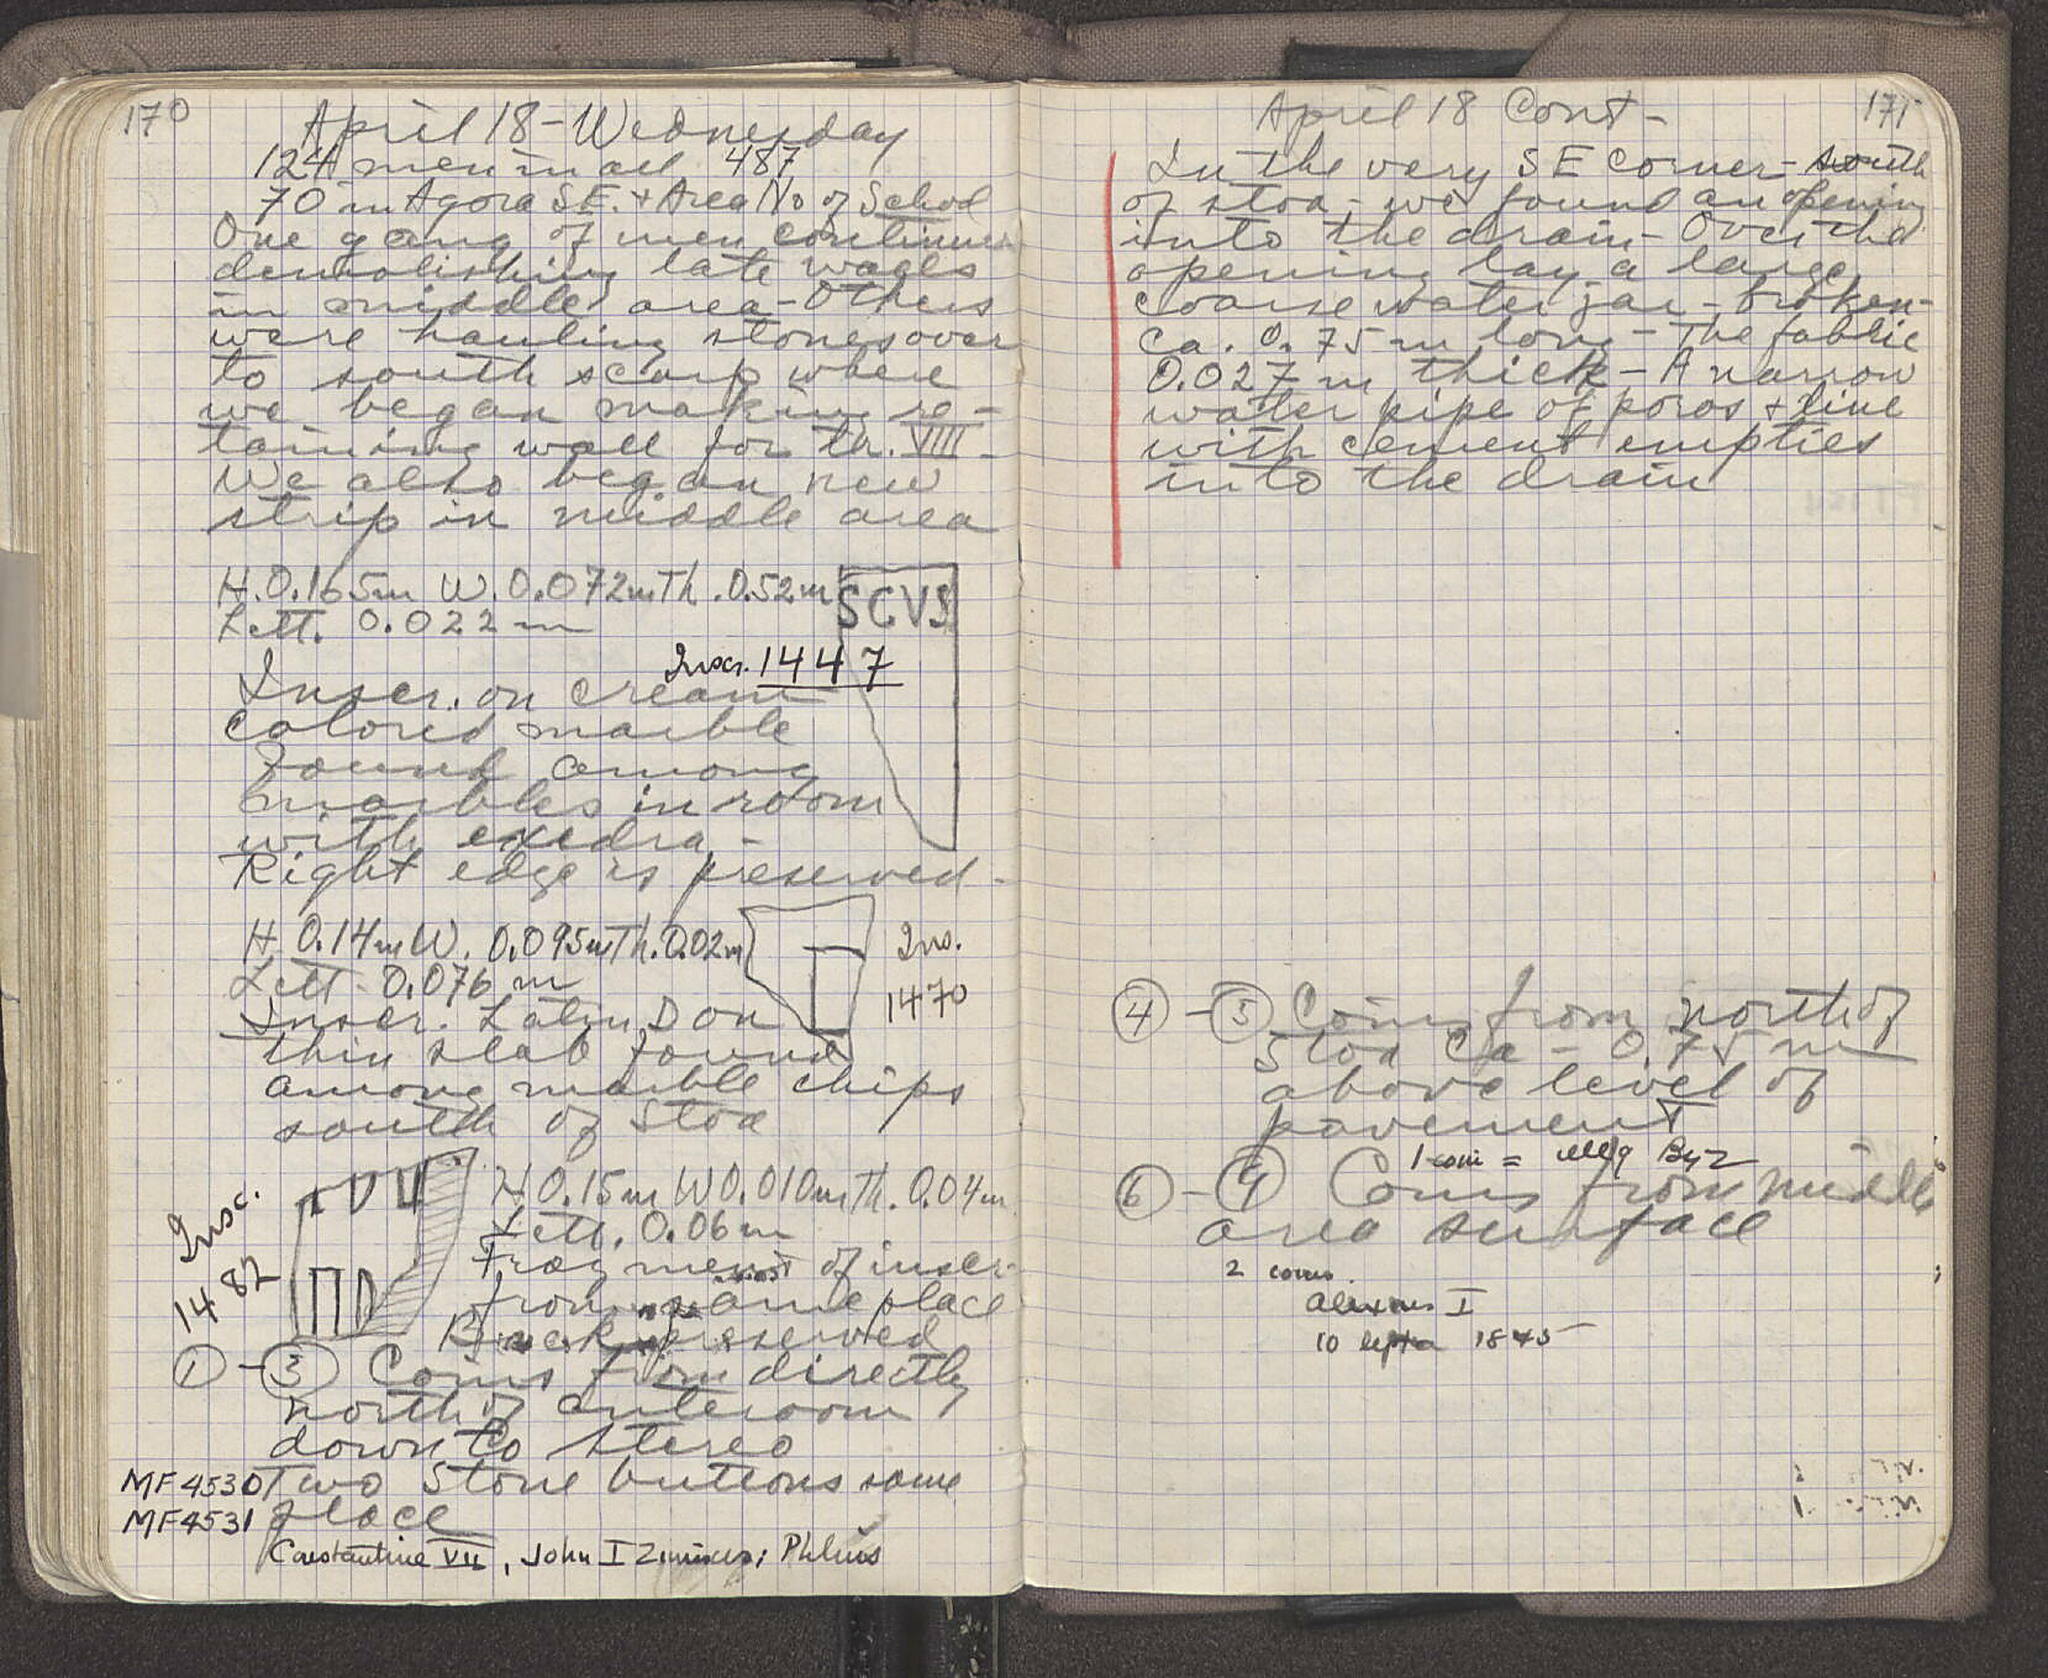 170
April 18 - Wednesday
124 men in all 487
70 in Agora SE. + Area No of School
One gang of men continued
demolishing late walls
in middle area - Others
were hauling stones over
to south scarp where
we began making re-
taining wall for tr. VIII -
We also began new
strip in middle area
H. 0.165m W. 0.072m Th. 0.52m
Lett. 0.022 m
SCVS
Inscr. 1447
Inscr. on cream
colored marble
Found among
marbles in room
with exedra -
Right edge is preserved -
H 0.14m W. 0.095m Th. 0.02m
Lett - 0.076 m
Ins.
1470
Inscr. Latin D on
thin slab found
among marble chips
south of Stoa
Insc.
1482
H 0.15m W 0.010m Th. 0.04m
Lett. 0.06m
Fragment of inscr.
from same place
Back preserved
① - ③ Coins from directly
north of anteroom
down to stereo
MF 4530 Two Stone buttons same
MF 4531 place
Constantine VII, John I Zimisces; Phlius
171
April 18 Cont -
In the very SE corner - south
of stoa - we found an opening
into the drain - Over the
opening lay a large
coarse water jar - broken -
ca. 0.75m long - The fabric
0.027 m thick - A narrow
water pipe of poros + line
with cement empties
into the drain
④ - ⑤ Coins from north of
Stoa Ca - 0.75 m
above level of
pavement
1 coin = illeg Byz
⑥ - ⑨ Coins from middle
area surface
2 coins.
Alexius I
10 lepta 1845